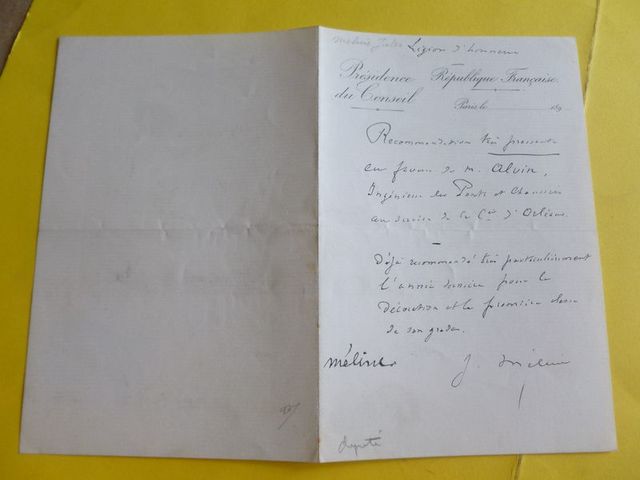 méline Jules
Légion d'honneur
Présidence
du Conseil
République Française
Paris le 189
Recommandation très pressante
en faveur de M. Alvin,
Ingénieur des Ponts et Chaussées
au service de la Cie d'Orléans.
Déjà recommandé très particulièrement
l'année dernière pour la
décoration et la première classe
de son grade.
méline
J. Méline
député